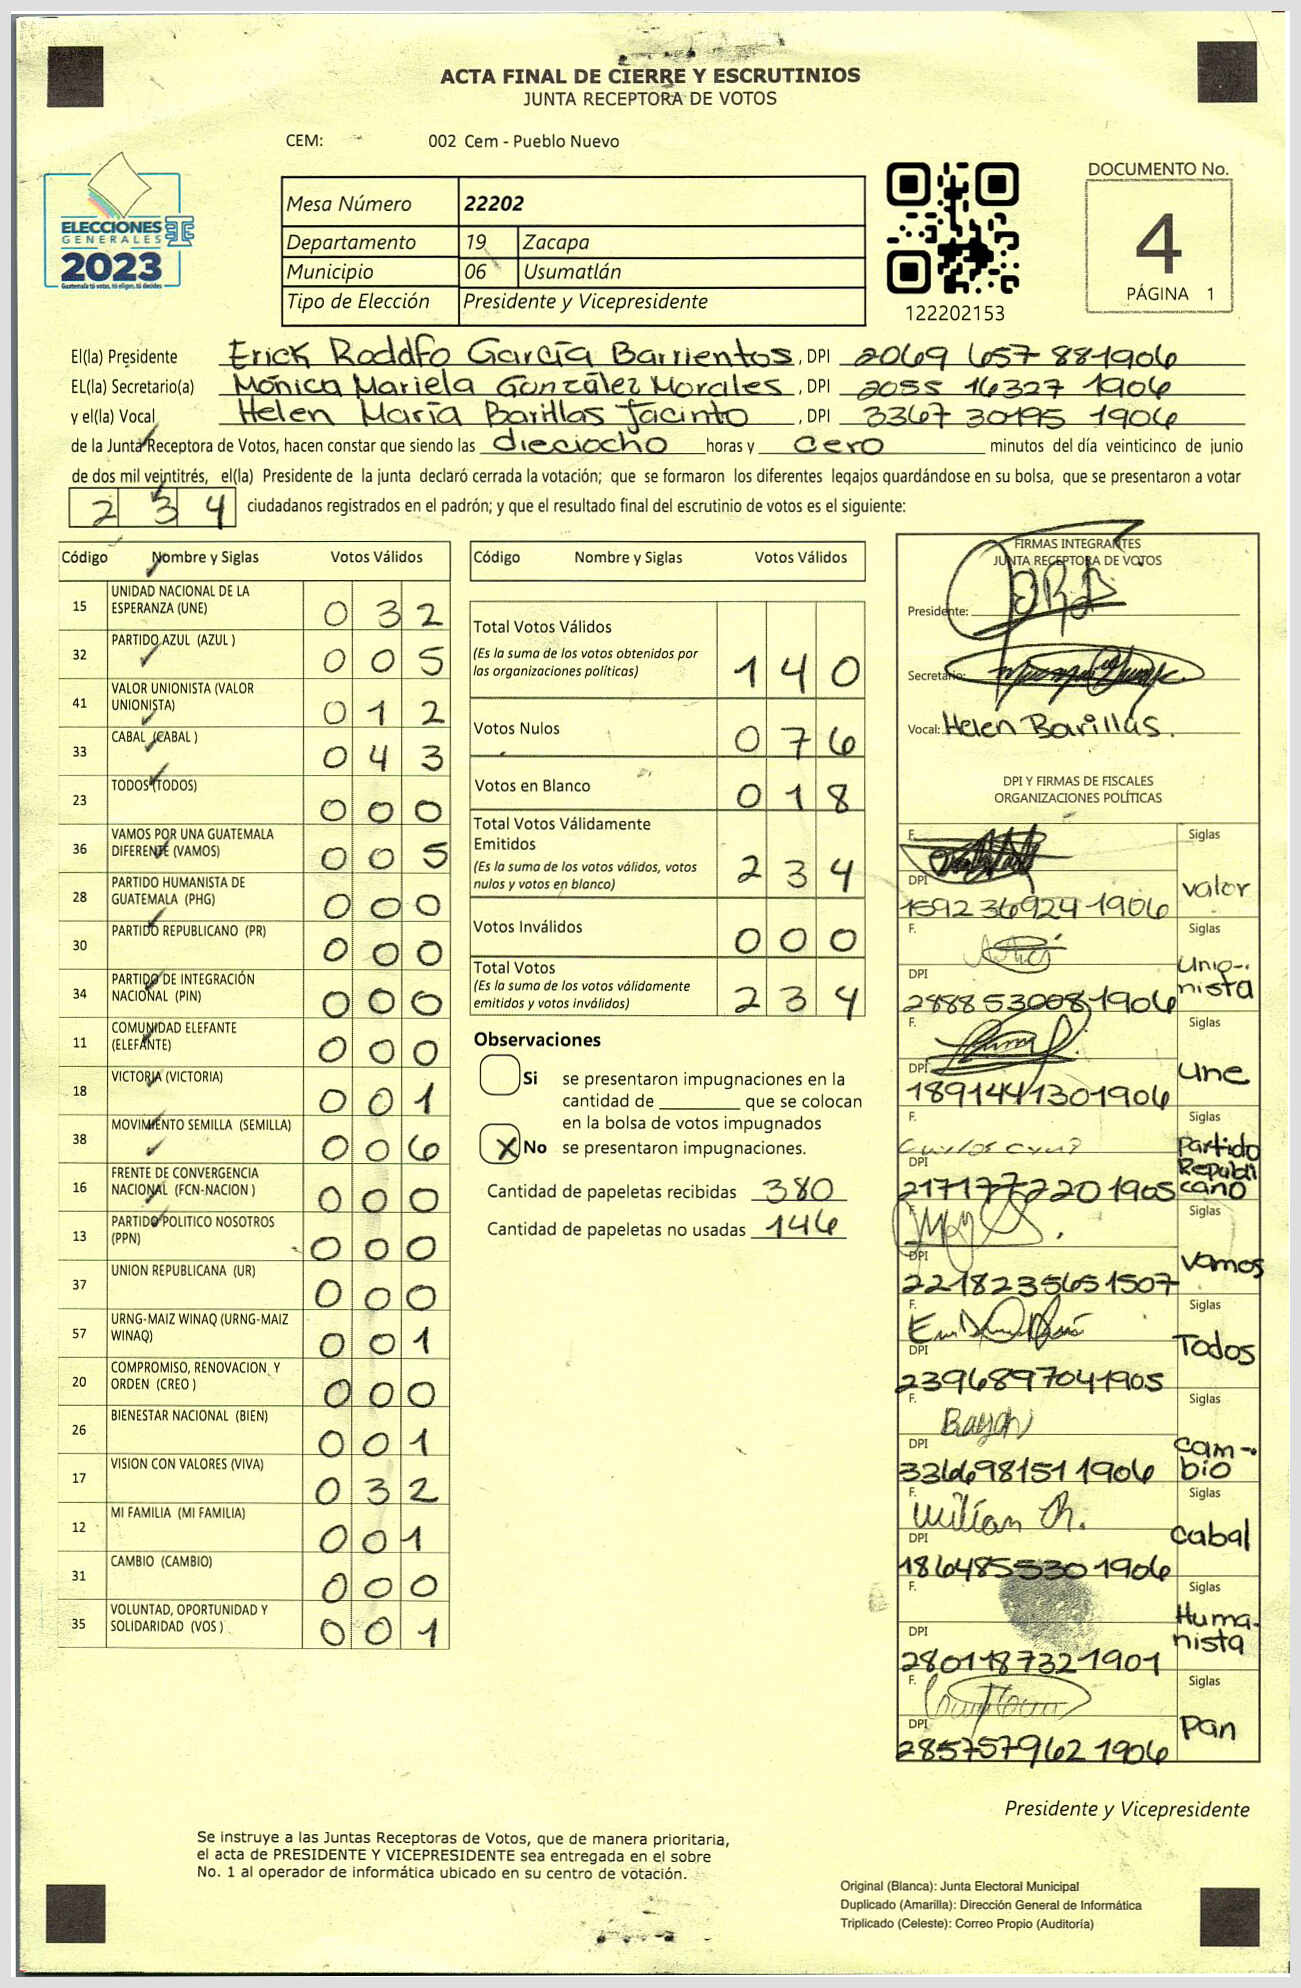 ACTA FINAL DE CIERRE Y ESCRUTINIOS
JUNTA RECEPTORA DE VOTOS
CEM: 002 Cem - Pueblo Nuevo
ELECCIONES
GENERALES
2023
Guatemala tú votas, tú eliges, tú decides
Mesa Número 22202
Departamento 19 Zacapa
Municipio 06 Usumatlán
Tipo de Elección Presidente y Vicepresidente
122202153
DOCUMENTO No.
4
PÁGINA 1
El(la) Presidente Erick Rodolfo García Barrientos, DPI 2069 657 881906
EL(la) Secretario(a) Mónica Mariela González Morales, DPI 2055 16327 1906
y el(la) Vocal Helen María Barillas Jacinto, DPI 3367 30195 1906
de la Junta Receptora de Votos, hacen constar que siendo las dieciocho horas y cero minutos del día veinticinco de junio
de dos mil veintitrés, el(la) Presidente de la junta declaró cerrada la votación; que se formaron los diferentes legajos guardándose en su bolsa, que se presentaron a votar
234 ciudadanos registrados en el padrón; y que el resultado final del escrutinio de votos es el siguiente:
Código Nombre y Siglas Votos Válidos
15 UNIDAD NACIONAL DE LA ESPERANZA (UNE) 032
32 PARTIDO AZUL (AZUL ) 005
41 VALOR UNIONISTA (VALOR UNIONISTA) 012
33 CABAL (CABAL ) 043
23 TODOS (TODOS) 000
36 VAMOS POR UNA GUATEMALA DIFERENTE (VAMOS) 005
28 PARTIDO HUMANISTA DE GUATEMALA (PHG) 000
30 PARTIDO REPUBLICANO (PR) 000
34 PARTIDO DE INTEGRACIÓN NACIONAL (PIN) 000
11 COMUNIDAD ELEFANTE (ELEFANTE) 000
18 VICTORIA (VICTORIA) 001
38 MOVIMIENTO SEMILLA (SEMILLA) 006
16 FRENTE DE CONVERGENCIA NACIONAL (FCN-NACION ) 000
13 PARTIDO POLITICO NOSOTROS (PPN) 000
37 UNION REPUBLICANA (UR) 000
57 URNG-MAIZ WINAQ (URNG-MAIZ WINAQ) 001
20 COMPROMISO, RENOVACION Y ORDEN (CREO ) 000
26 BIENESTAR NACIONAL (BIEN) 001
17 VISION CON VALORES (VIVA) 032
12 MI FAMILIA (MI FAMILIA) 001
31 CAMBIO (CAMBIO) 000
35 VOLUNTAD, OPORTUNIDAD Y SOLIDARIDAD (VOS ) 001
Código Nombre y Siglas Votos Válidos
Total Votos Válidos
(Es la suma de los votos obtenidos por las organizaciones políticas) 140
Votos Nulos 076
Votos en Blanco 018
Total Votos Válidamente Emitidos
(Es la suma de los votos válidos, votos nulos y votos en blanco) 234
Votos Inválidos 000
Total Votos
(Es la suma de los votos válidamente emitidos y votos inválidos) 234
Observaciones
Si se presentaron impugnaciones en la
cantidad de ________ que se colocan
en la bolsa de votos impugnados
X No se presentaron impugnaciones.
Cantidad de papeletas recibidas 380
Cantidad de papeletas no usadas 146
FIRMAS INTEGRANTES
JUNTA RECEPTORA DE VOTOS
Presidente:
Secretario:
Vocal: Helen Barillas.
DPI Y FIRMAS DE FISCALES
ORGANIZACIONES POLÍTICAS
F. Siglas
DPI 1592 36924 1906 Valor
F. Siglas
DPI 2888530081906 Unio-nista
F. Siglas
DPI 1891441301906 Une
F. Siglas
DPI 2171772201905 Partido Republicano
F. Siglas
DPI 2218235651507 Vamos
F. Siglas
DPI 2396897041905 Todos
F. Siglas
DPI 3366981511906 Cam-bio
F. Willian Ch. Siglas
DPI 1864855301906 Cabal
F. Siglas
DPI 2801187321901 Huma-nista
F. Siglas
DPI 2857579621906 Pan
Presidente y Vicepresidente
Se instruye a las Juntas Receptoras de Votos, que de manera prioritaria,
el acta de PRESIDENTE Y VICEPRESIDENTE sea entregada en el sobre
No. 1 al operador de informática ubicado en su centro de votación.
Original (Blanca): Junta Electoral Municipal
Duplicado (Amarilla): Dirección General de Informática
Triplicado (Celeste): Correo Propio (Auditoría)